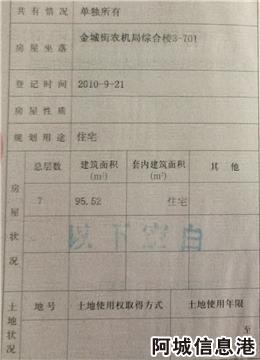 共有情况 单独所有
房屋坐落 金城街农机局综合楼3-701
登记时间 2010-9-21
房屋性质
规划用途 住宅
房屋状况
总层数 建筑面积(m²) 套内建筑面积(m²) 其他
7 95.52 住宅
以下空白
土地状况
地号 土地使用权取得方式 土地使用年限
至
阿城信息港